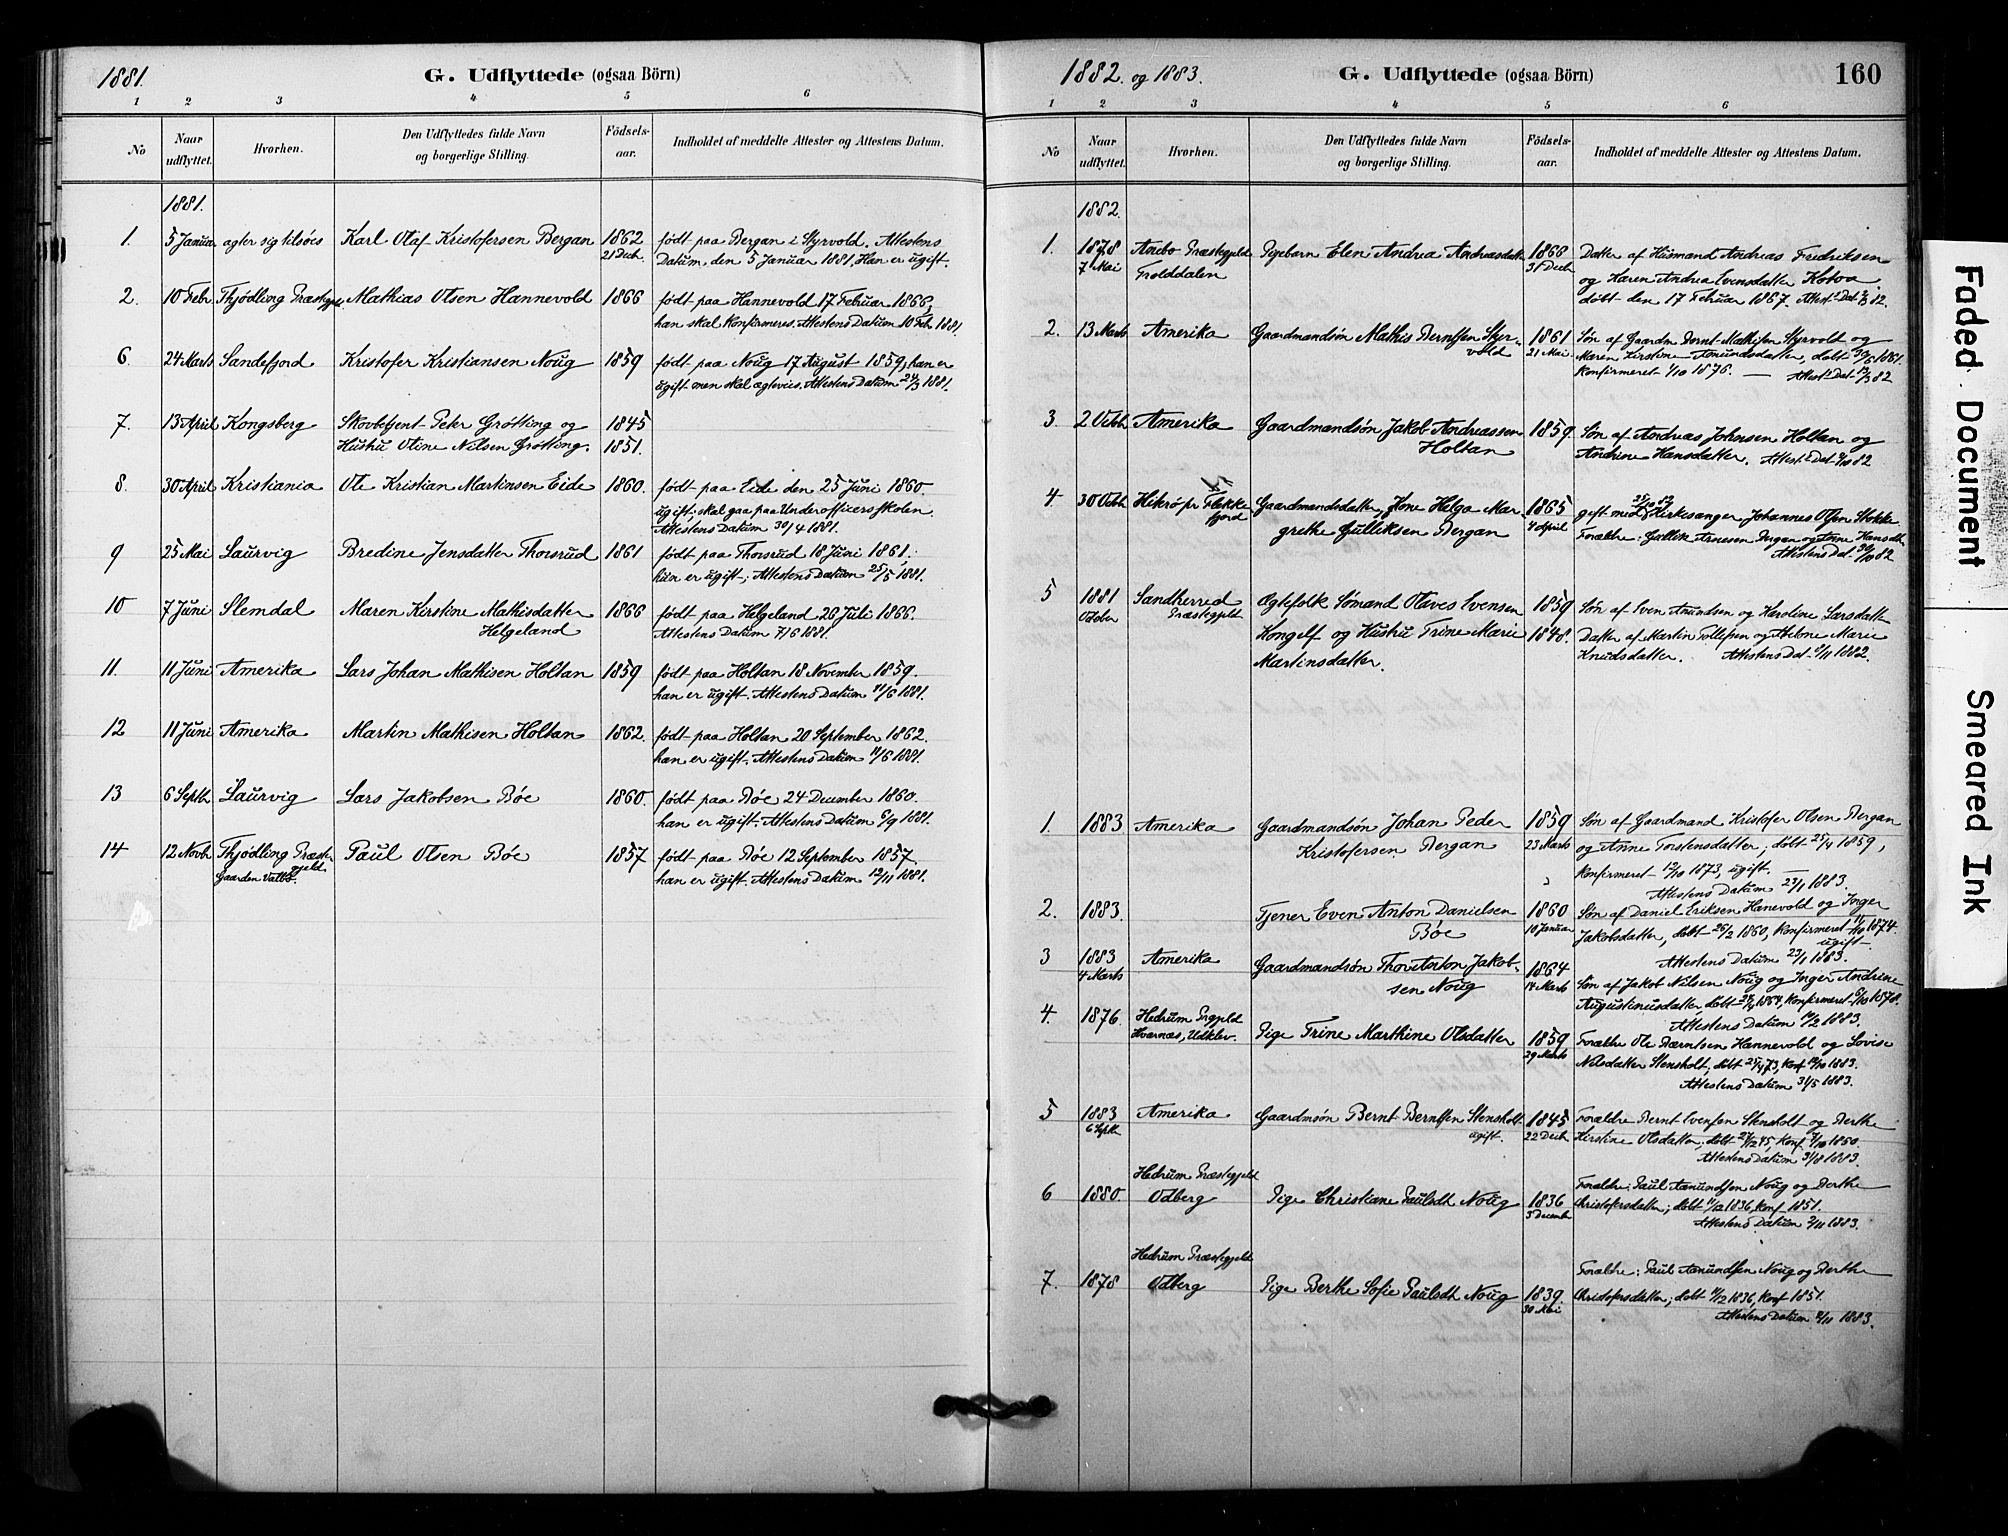 1881.
G. Udflyttede (ogsaa Börn)
1 2 3 4 5 6
No
Naar udflyttet.
Hvorhen.
Den Udflyttedes fulde Navn
og borgerlige Stilling.
Födsels-
aar.
Indholdet af meddelte Attester og Attestens Datum.
1881.
1. 5 Januar agter sig tilsøes Karl Olaf Kristofersen Bergan 1862 født paa Bergan i Styrvold. Attestens
21 Decb. Datum den 5 Januar 1881. Han er ugift.
2. 10 Febr Thjødling Præstegjeld Mathias Olsen Hannevold 1866 født paa Hannevold 17 Februar 1866,
han skal konfirmeres. Attestens Datum 10 Feb 1881.
6. 24 Marts Sandefjord Kristofer Kristiansen Noug 1859 født paa Noug 17 August 1859, han er
ugift men skal ægtevies. Attestens Datum 24/3 1881.
7. 13 April Kongsberg Skovbetjent Peter Grøtting og 1845
Hustru Otine Nilsen Grøtting. 1851.
8. 30 April Kristiania Ole Kristian Martinsen Eide 1860. født paa Eide den 25 Juni 1860.
ugift; skal gaa paa Underofficersskolen.
Attestens Datum 30/4 1881.
9 25 Mai Laurvig Bredine Jensdatter Thorsrud 1861 født paa Thorsrud 18 Juni 1861,
hun er ugift; Attestens Datum 25/5 1881.
10 7 Juni Slemdal Maren Kirstine Mathisdatter 1866 født paa Helgeland 26 Juli 1866.
Helgeland Attestens Datum 7/6 1881.
11. 11 Juni Amerika Lars Johan Mathisen Holtan 1859 født paa Holtan 18 November 1859.
han er ugift. Attestens Datum 11/6 1881.
12 11 Juni Amerika Martin Mathisen Holtan 1862. født paa Holtan 20 September 1862.
han er ugift. Attestens Datum 11/6 1881.
13 6 Septb. Laurvig Lars Jakobsen Bøe 1860. født paa Bøe 24 December 1860.
han er ugift. Attestens Datum 6/9 1881.
14 12 Novb. Thjødling Præste- Paul Olsen Bøe 1857 født paa Bøe 12 September 1857.
gjeld
Gaarden Valby. han er ugift. Attestens Datum 12/11 1881.
1882. og 1883.
G. Udflyttede (ogsaa Börn)
160
1 2 3 4 5 6
No
Naar udflyttet.
Hvorhen.
Den Udflyttedes fulde Navn
og borgerlige Stilling.
Födsels-
aar.
Indholdet af meddelte Attester og Attestens Datum.
1882.
1. 1878 Præstegjeld Pigebarn Elen Andrea Andreasdatter 1866 Datter af Husmand Andreas Fredriksen
7 Mai Trolddalen 31 Decb og Karen Andrea Evensdatter
døbt den 17 Februar 1867. Attest. Dat.
2. 13 Marts Amerika Gaardmandsøn Mathis Berntsen Styr- 1861 Søn af Gaardm. Bernt Mathisen Styrvold og
vold 21 Mai. Maren Kirstine Amundsdatter, døbt 30/6 1861.
Konfirmeret 1/10 1876. — Attest. Dat. 13/3 82
3 2 Octb. Amerika Gaardmandsøn Jakob Andreassen 1859. Søn af Andreas Johnsen Holtan og
Holtan Andrine Hansdatter. Attest. Dat 2/10 82
4. 30 Octb. Hitterø pr Flekke Gaardmandsdatter Helga Mar- 1865 gift med Kirkesanger Johannes Olsen Stokke
fjord grethe Gulliksen Bergan 4 April Forældre: Gullik Arnesen Bergan og Hansdtr
Attestens Dat. 30/10 82
5 1881 Sandherred Ægtefolk Sømand Olaves Evensen 1859 Søn af Even Amundsen og Karoline Larsdatter
October Præstegjeld Kongelf og Hustru Trine Marie 1848. Datter af Martin Tollefsen og Marie
Martinsdatter. Knudsdatter. Attestens Dat. 1882.
1. 1883 Amerika Gaardmandsøn Johan Peder 1859 Søn af Gaardmand Kristofer Olsen Bergan
Kristofersen Bergan 23 Marts og Anne Torstensdatter; døbt 25/4 1859,
Konfirmeret 12/10 1873, ugift.
Attestens Datum 23/1 1883.
2. 1883. Tjener Even Anton Danielsen 1860 Søn af Daniel Eriksen Hanevold og Inger
Bøe 10 Januar Jakobsdatter, døbt 26/2 1860, Konfirmeret 11/10 1874.
ugift.
Attestens Datum 23/1 1883.
3 1883 Amerika Gaardmandsøn Jakob- 1864 Søn af Jakob Nilsen Noug og Inger Andrine
4 Marts sen Noug 14 Marts Augustinusdatter, døbt 1864, Konfirmeret 6/10 1878.
Attestens Datum 1883.
4. 1876. Hedrum Prgjeld Pige Trine Marthine Olsdatter 1859 Forældre Ole Berntsen Hannevold og Lovise
Hvarnes, Udklev. 29 Marts Nilsdatter Stensholt, døbt
Attestens Datum 31/5 1883.
5 1883 Amerika Gaardmsøn Bernt Berntsen Stensholt 1845 Forældre Bernt Evensen Stensholt og Berthe
6 Septb. ugift. 22 Decb Kirstine Olsdatter, døbt 27/12 45, Konf. 7/10 1860.
Attestens Datum 31/8 1883.
6 1880 Hedrum Præstegjeld Odberg Pige Christiane Paulsdtr Noug 1836 Forældre: Paul Amundsen Noug og Berthe
3 December Christofersdatter; døbt 11/12 1836, Konf 1851.
Attestens Datum 2/11 1883.
7. 1878 Hedrum Præstegjeld Odberg Pige Berthe Sofie Paulsdtr Noug 1839. Forældre: Paul Amundsen Noug og Berthe
30 Mai Christofersdatter; døbt 11/12 1836, Konf 1851.
Attestens Datum 2/11 1883.
Faded Document
Smeared Ink